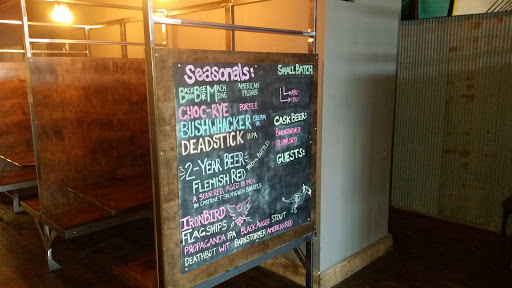 Seasonals:
SMALL BATCH
BACKBEERD BEER MACHINE
AMERICAN PILSNER
CHOC-RYE PORTER
BUSHWHACKER CREAM ALE
CASK BEER:
DEADSTICK IIPA
BARNSTORMER
2-YEAR BEER
FLEMISH RED
GUESTS:
A SOUR RED, AGED 18 MOS
IN CABERNET SAUVIGNON BARRELS
IRONBIRD
FLAGSHIPS
PROPAGANDA IPA BLACK ANGEL STOUT
DEATHBOT WIT BARNSTORMER AMERICAN RED